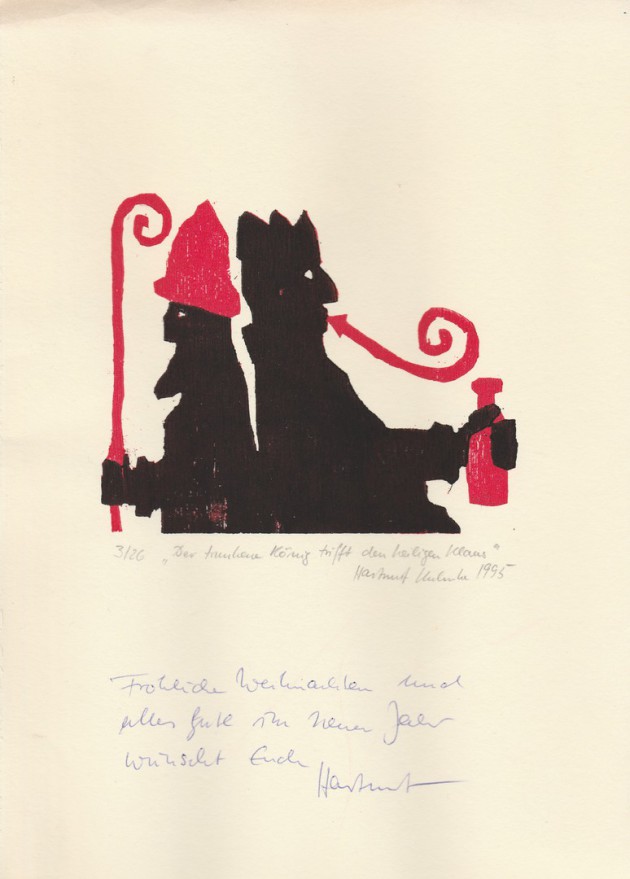 3/26 „Der trunkene König trifft den heiligen Klaus“
Hartmut 1995
Fröhliche Weihnachten und
alles Gute im Neuen Jahr
wünscht Euch
Hartmut